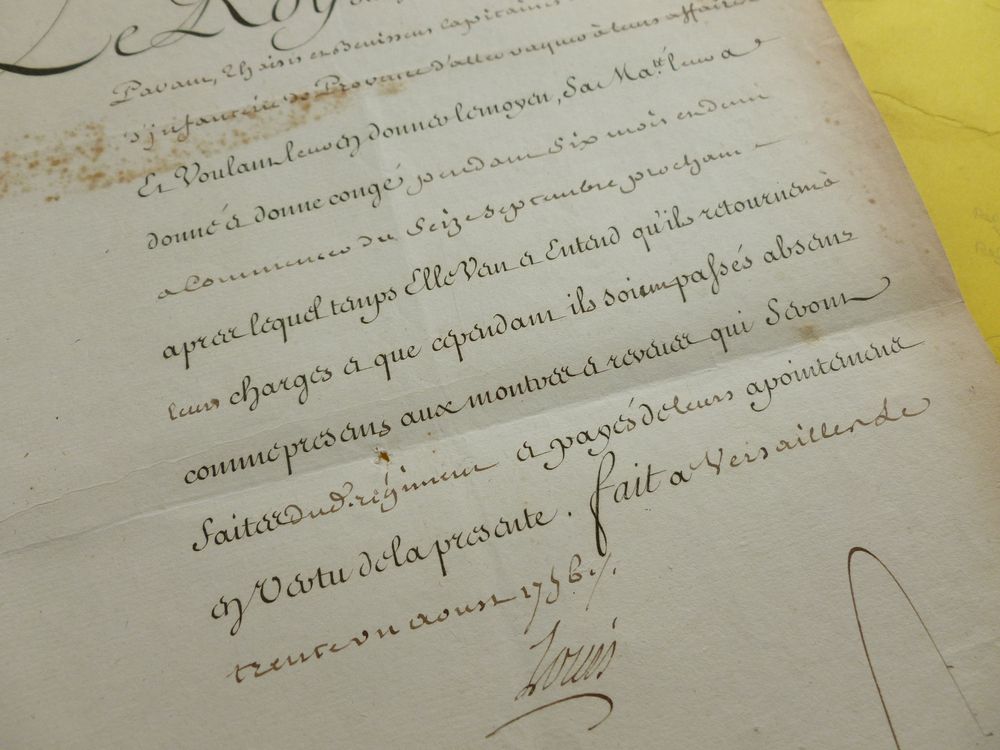 Le Roy
d'Infanterie de Provence d'aller vaquer à leurs affaires
Et Voulant leur en donner le moyen, Sa Ma.té leur a
donné et donne congé pendant Six mois en deuu
a Commencer du Seize Septembre prochain
apres lequel temps Elle Veut et Entend qu'ils retournent à
leurs charges et que cependant ils soient passés absens
comme presens aux montres et reveües qui Seront
faites dud. regiment et payés de leurs apointemens
en Vertu de la presente. fait a Versailles le
trente un aoust 1756 ./.
Louis